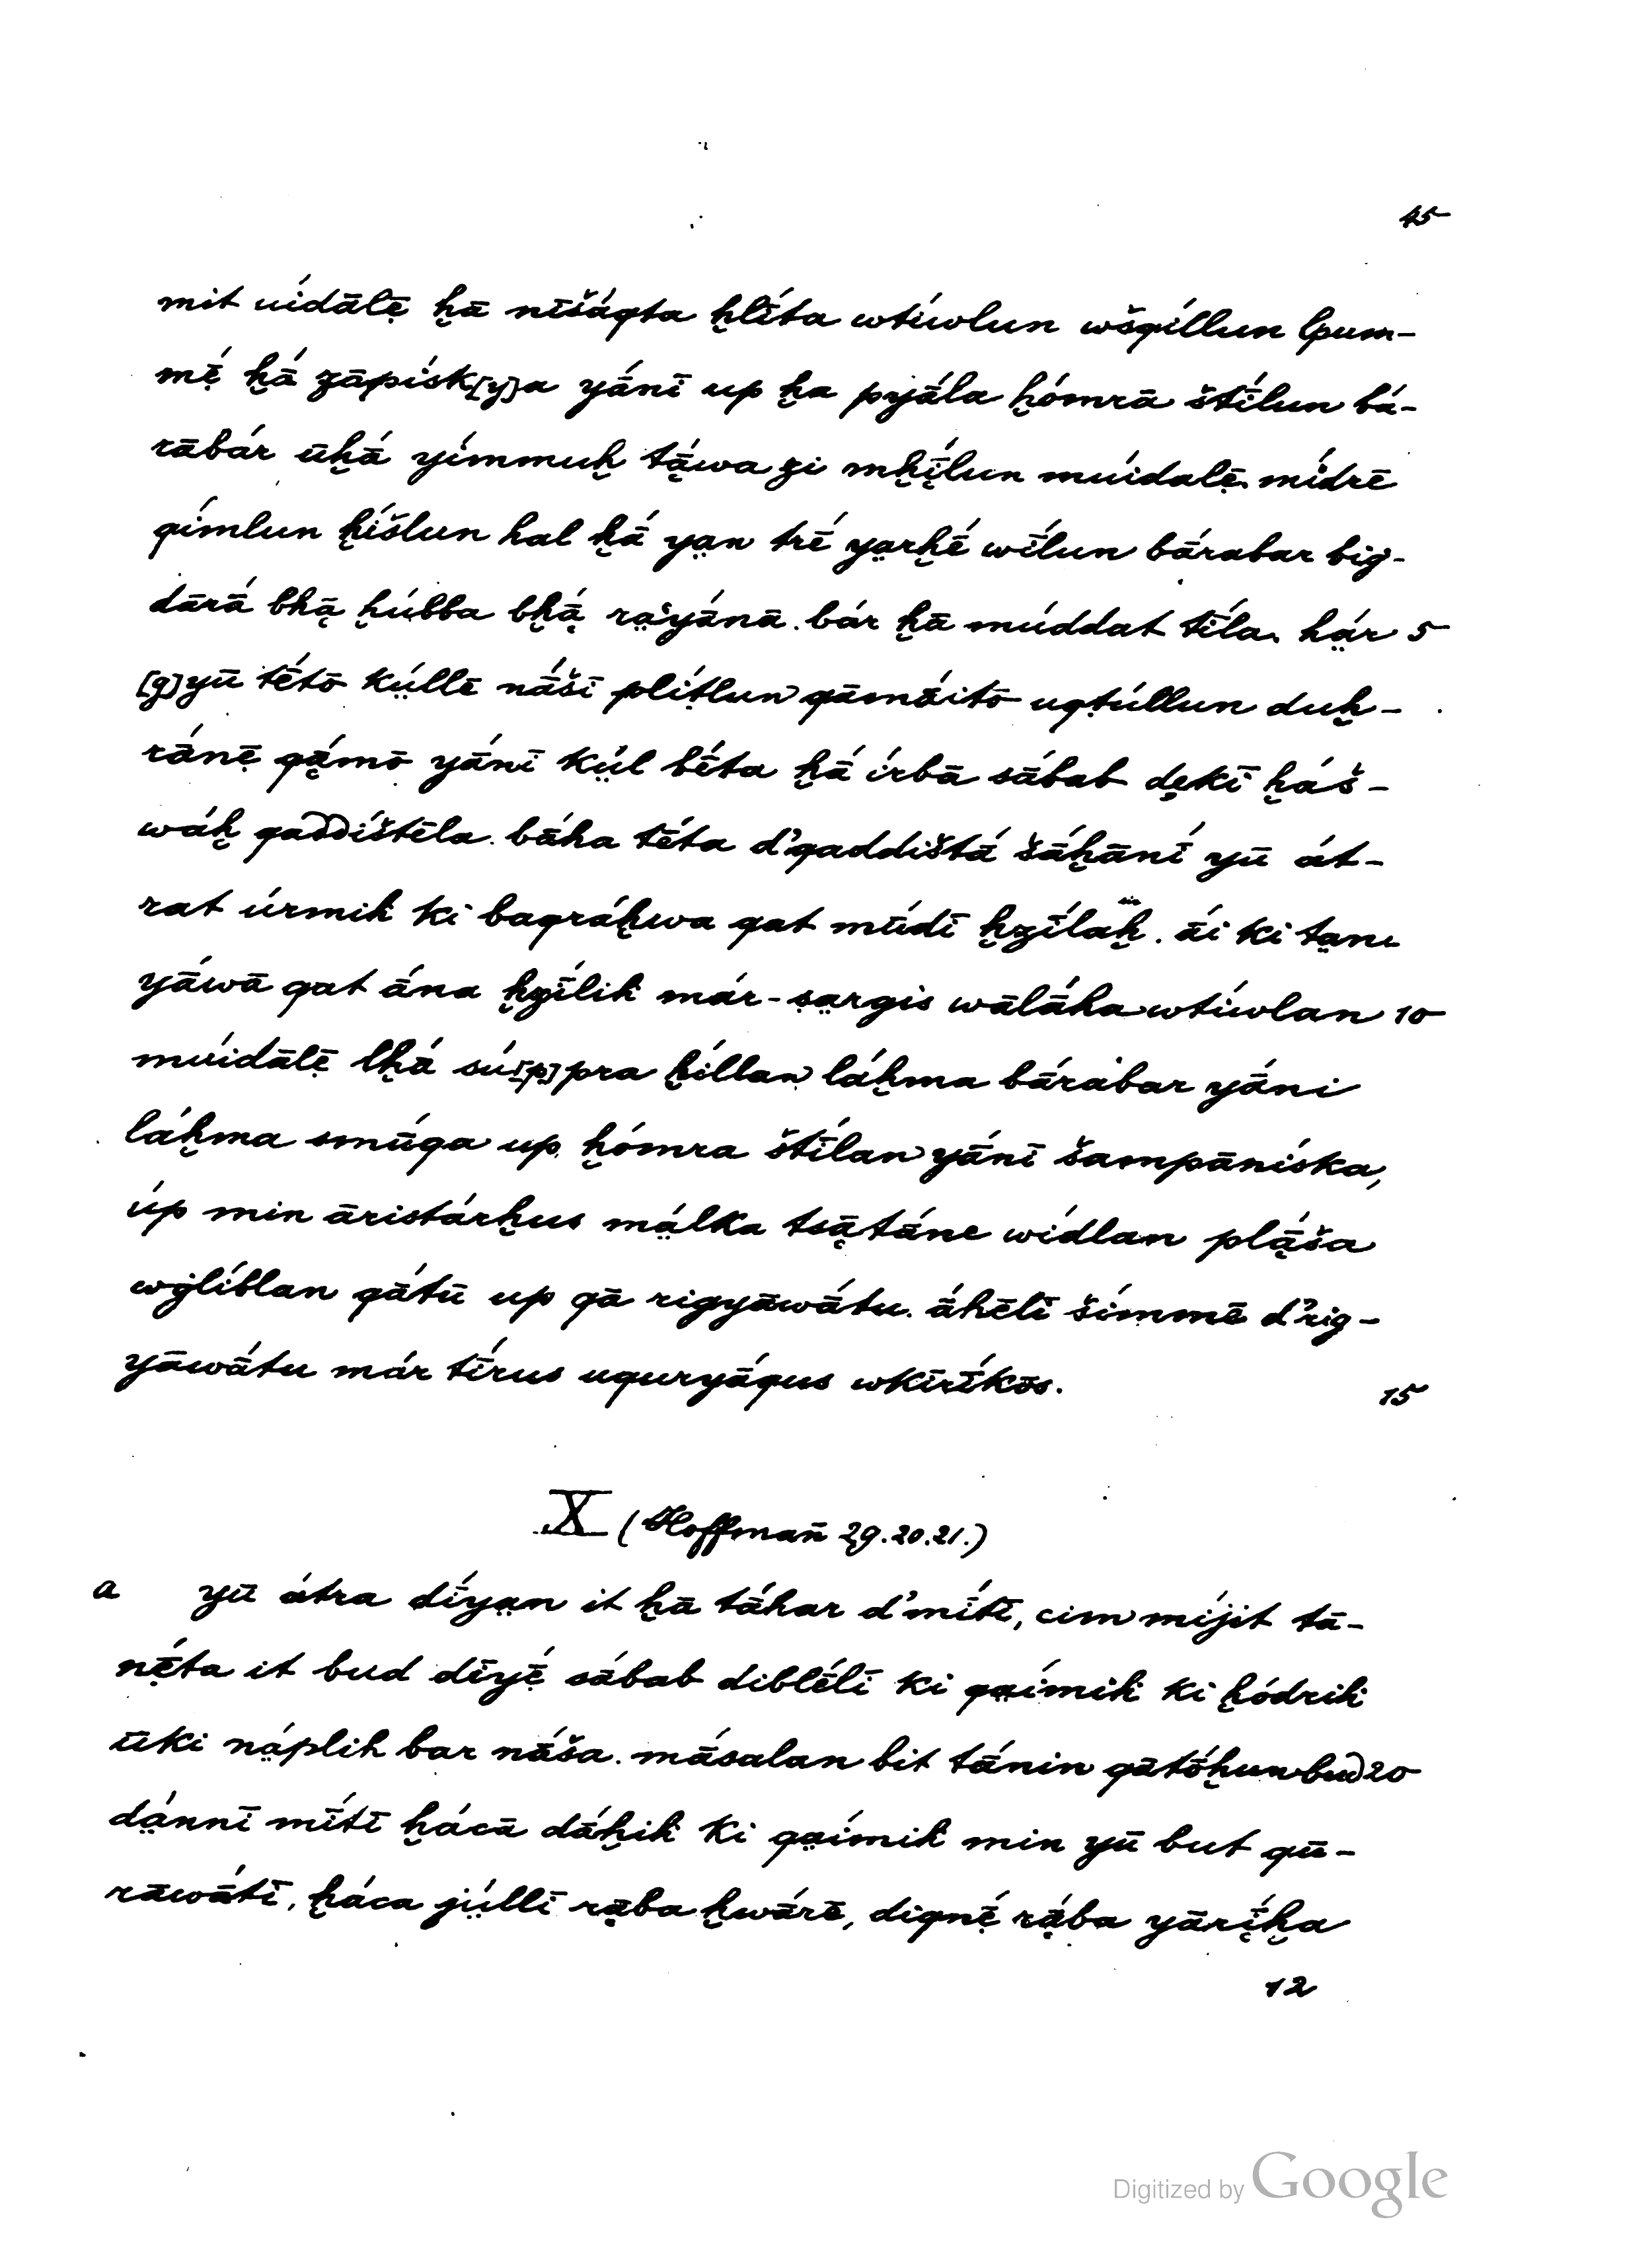 45
mit uídālẹ̄ ḫā nīšáqta ḫlíta wtíwlun wšqíllun lpum-
mẹ̄́ ḫā́ zāpísk[y]a yā́nī up ḫa pyā́la ḫómrā štī́lun bá-
rābár ūḫā́ yímmuḫ tā̤́wa zi mḫī̤́lun muídalẹ̄. mídrē
qímlun ḫíšlun hal ḫā́ ya̤n trḗ ya̤rḫḗ wī́lun bā́rabar big-
dārā́ bhā̤ ḫúbba bḫā̤́ ra̤ʿyā́nā. bár ḫā múddat tī́la. há̤r 5
[g]yū tḗtō kṳ́llē nā́šī plíṭlun qāmā́itō uqṭúllun duḫ-
rā́nẹ̄ qā̤́mō yā́nī kṳ́l bḗta ḫā́ írbā sā́bab de̤kī ḫáš-
wáḫ qaddíštēla. bā́ha tḗta d'qaddištā́ šāḫānī́ yū át-
rat úrmih ki baqráḫwa qat mū́dī ḫzī́lāḫ. ā́i ki ta̤nı
yā́wā qat ā́na ḫzī́lih már-sa̤rgis wālā́ha wtíwlan 10
muídālẹ̄ lḫā́ sú[p]pra ḫíllan láḫma bā́rābar yā́ni
láḫma smū́qa up ḫómra štī́lan yā́nī šampāníska,
úp min āristárḫus má̤lka tsā̤tā́ne wídlan plā̤́ša
wġlíblan qā́tū up qā rigyāwā́tu. ā́hēlī šímmē d'rig-
yāwā́tu már tī́rus uquryā́qus wkīrī́kōs.
15
X (Hoffmañ 29.20.21.)
a yū átra dī́ya̤n it ḫā tā́har d'mī́tī, cim míjit tā-
nẹ̄́ta it bud dīyẹ̄́ sā́bab diblḗlī ki qa̤ímih ki ḫódrih
ūki ná̤plih bar nā́ša. mā́salan bit tā́nin qātṓḫun bud 20
dá̤nnī mī́tī ḫácā dā́ḫih ki qa̤ímih min yū but qū-
rāwā́tī, ḫáca jṳ́llī rā̤ba ḫwā́rē, diqnẹ̄́ rā̤́ba yārī̤́ḫa
12
Digitized by Google